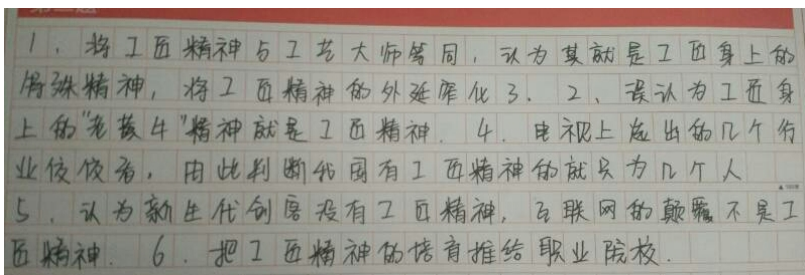 1、将工匠精神与工艺大师等同，认为其就是工匠身上的
特殊精神，将工匠精神的外延窄化了．2、误认为工匠身
上的"老黄牛"精神就是工匠精神．4．电视上选出的几个行
业佼佼者，由此判断我国有工匠精神的就只为几个人
5．认为新生代创客没有工匠精神，互联网的颠覆不是工
匠精神．6．把工匠精神的培育推给职业院校．